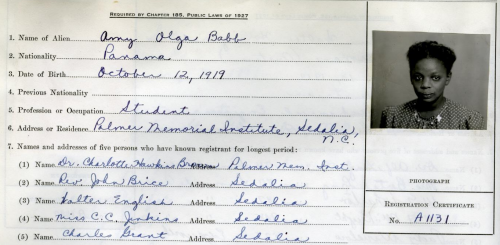 Required by Chapter 185, Public Laws of 1927
1. Name of Alien Amy Olga Babb
2. Nationality Panama
3. Date of Birth October 12, 1919
4. Previous Nationality
5. Profession or Occupation Student
6. Address or Residence Palmer Memorial Institute, Sedalia, N.C.
7. Names and addresses of five persons who have known registrant for longest period:
(1) Name Dr. Charlotte Hawkins Brown Address Palmer Mem. Inst.
(2) Name Rev. John Brice Address Sedalia
(3) Name Walter English Address Sedalia
(4) Name Miss C.C. Jenkins Address Sedalia
(5) Name Charles Grant Address Sedalia
PHOTOGRAPH
Registration Certificate
No. A1131